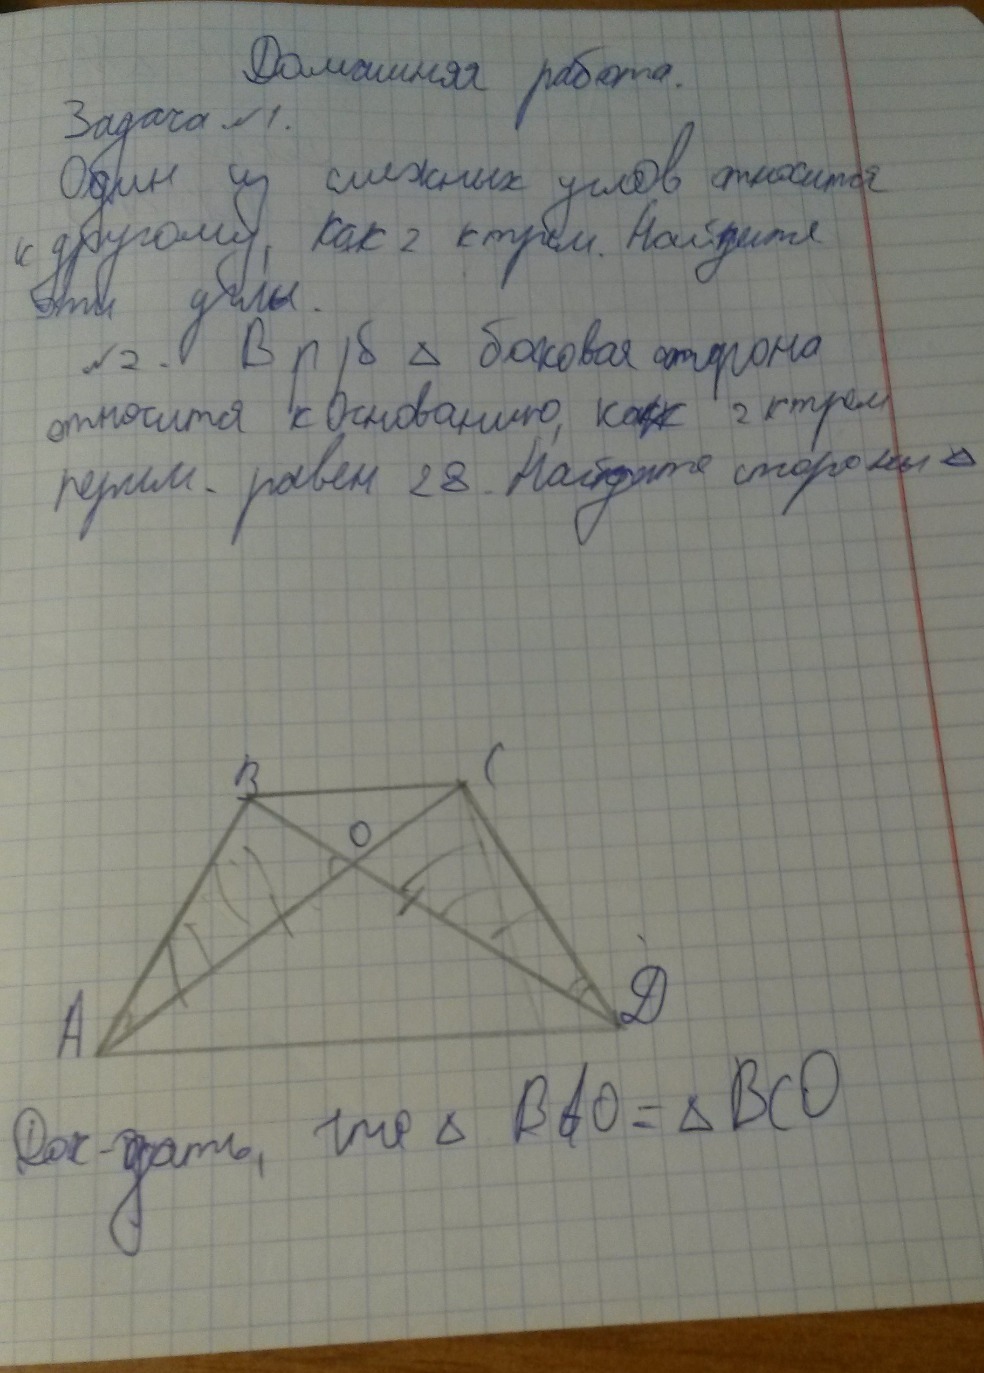 Домашняя работа.
Задача №1.
Один из смежных углов относится
к другому, как 2 к трём. Найдите
эти углы.
№2. В р/б △ боковая сторона
относится к основанию, как 2 к трём
перим. равен 28. Найдите стороны △
B C
O
A D
Док-зать, что △ BAO = △ BCO